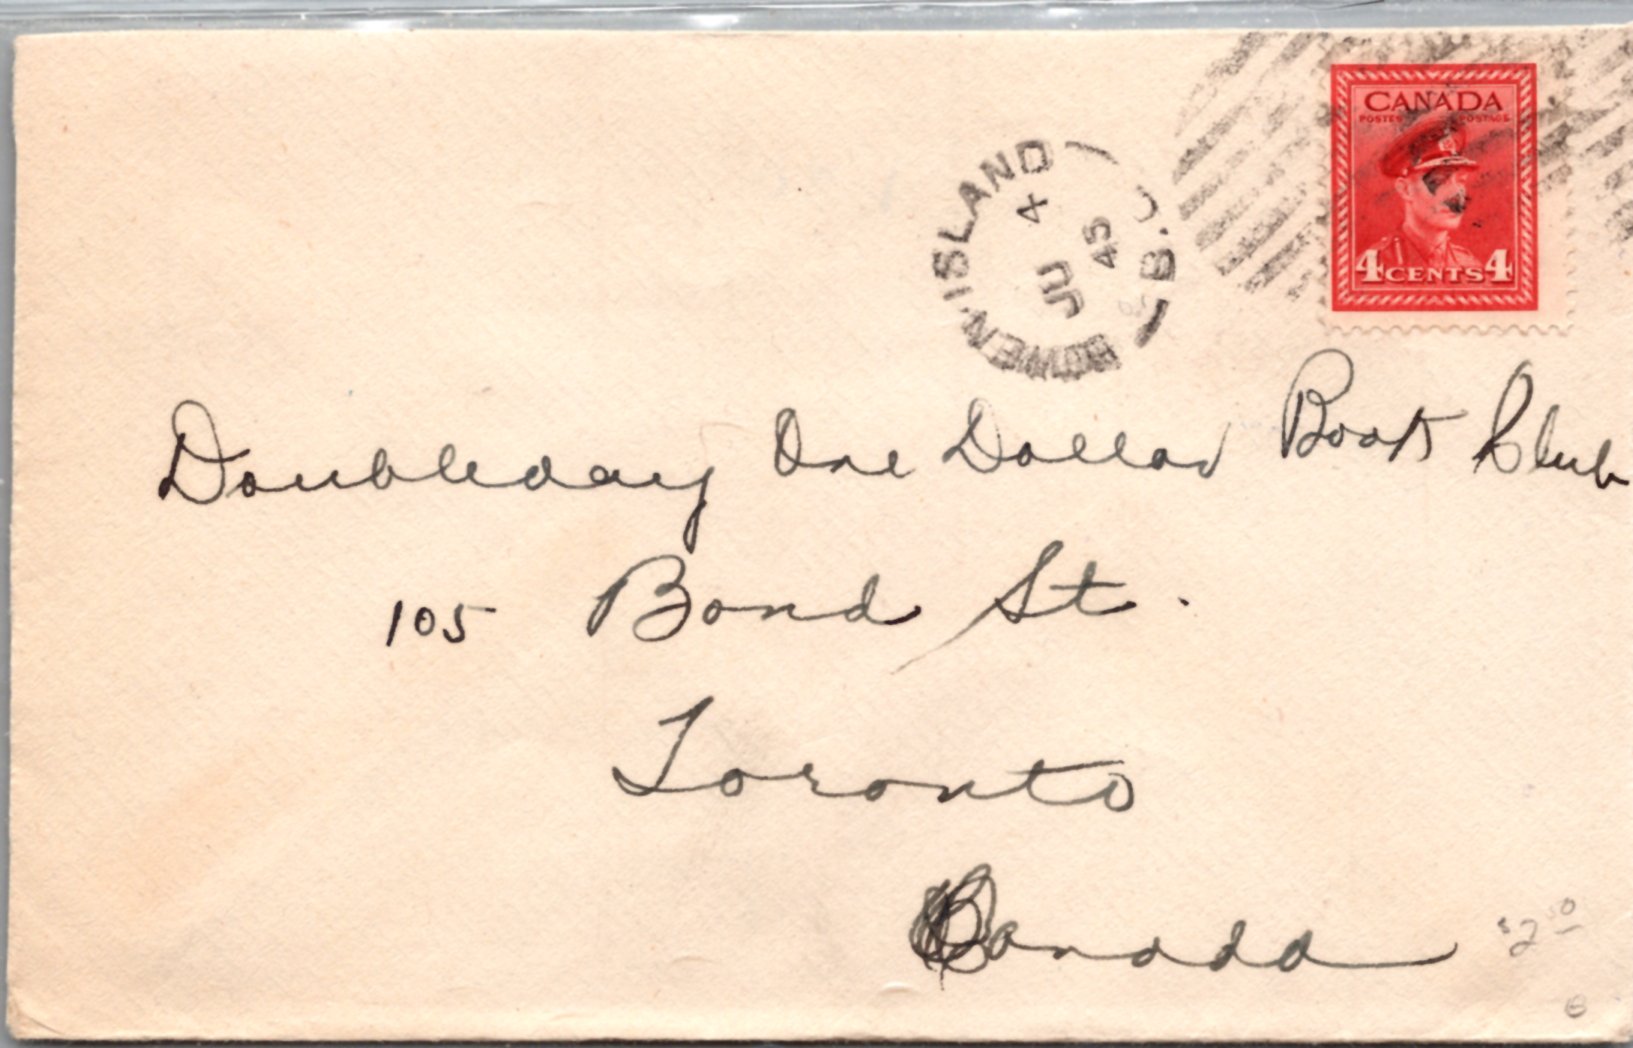 CANADA
POSTES POSTAGE
4 CENTS 4
BOWEN ISLAND B.C.
4
JU
45
Doubleday One Dollar Book Club
105 Bond St.
Toronto
Canada
$2.50